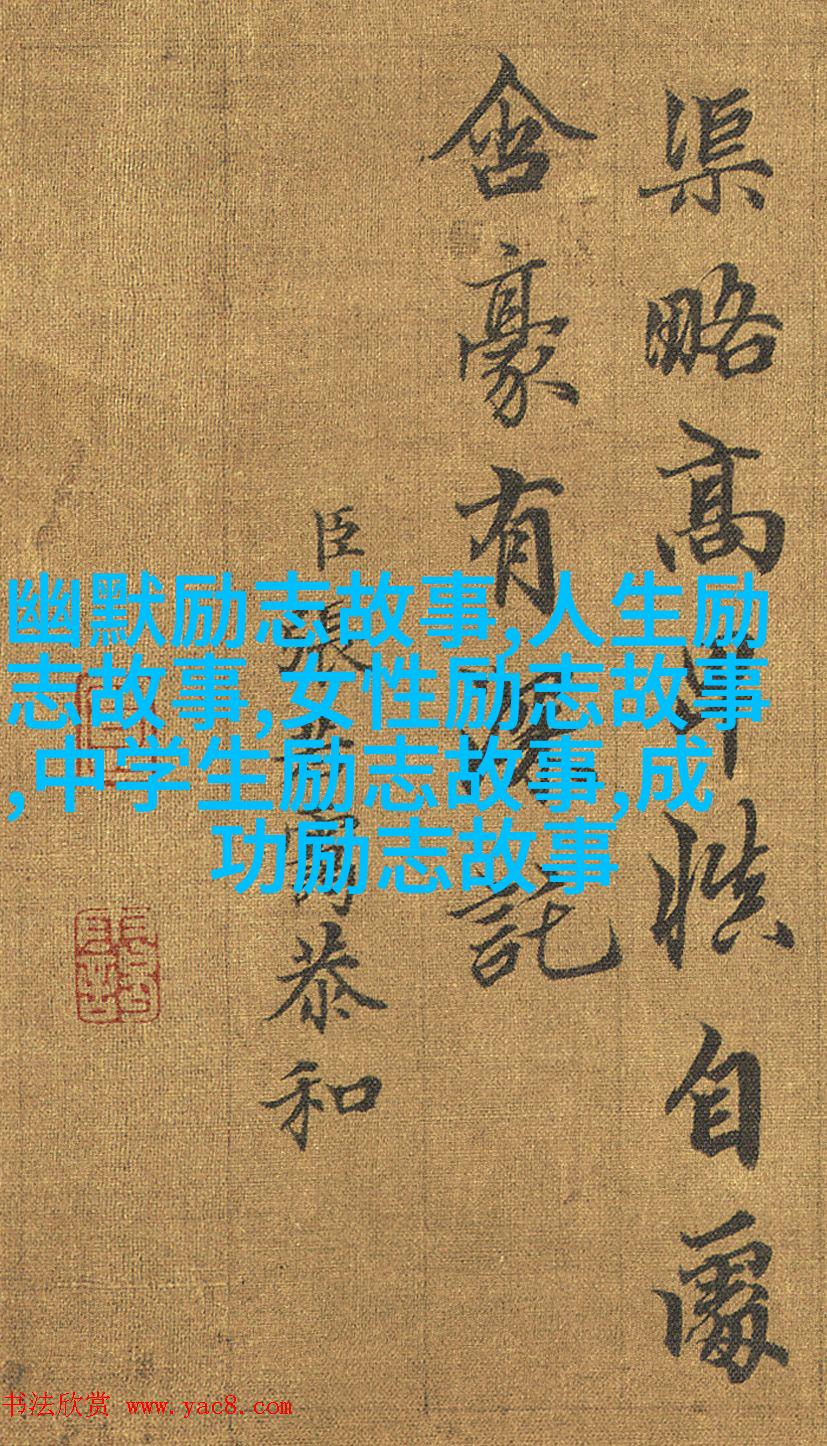 渠略高慎自處
含豪有深託
臣張若靄恭和
幽默励志故事,人生励
志故事,女性励志故事
,中学生励志故事,成
功励志故事
书法欣赏 www.yac8.com